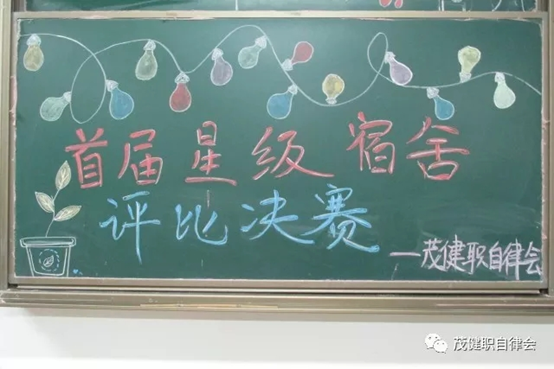 首届星级宿舍
评比决赛
—茂健职自律会
茂健职自律会